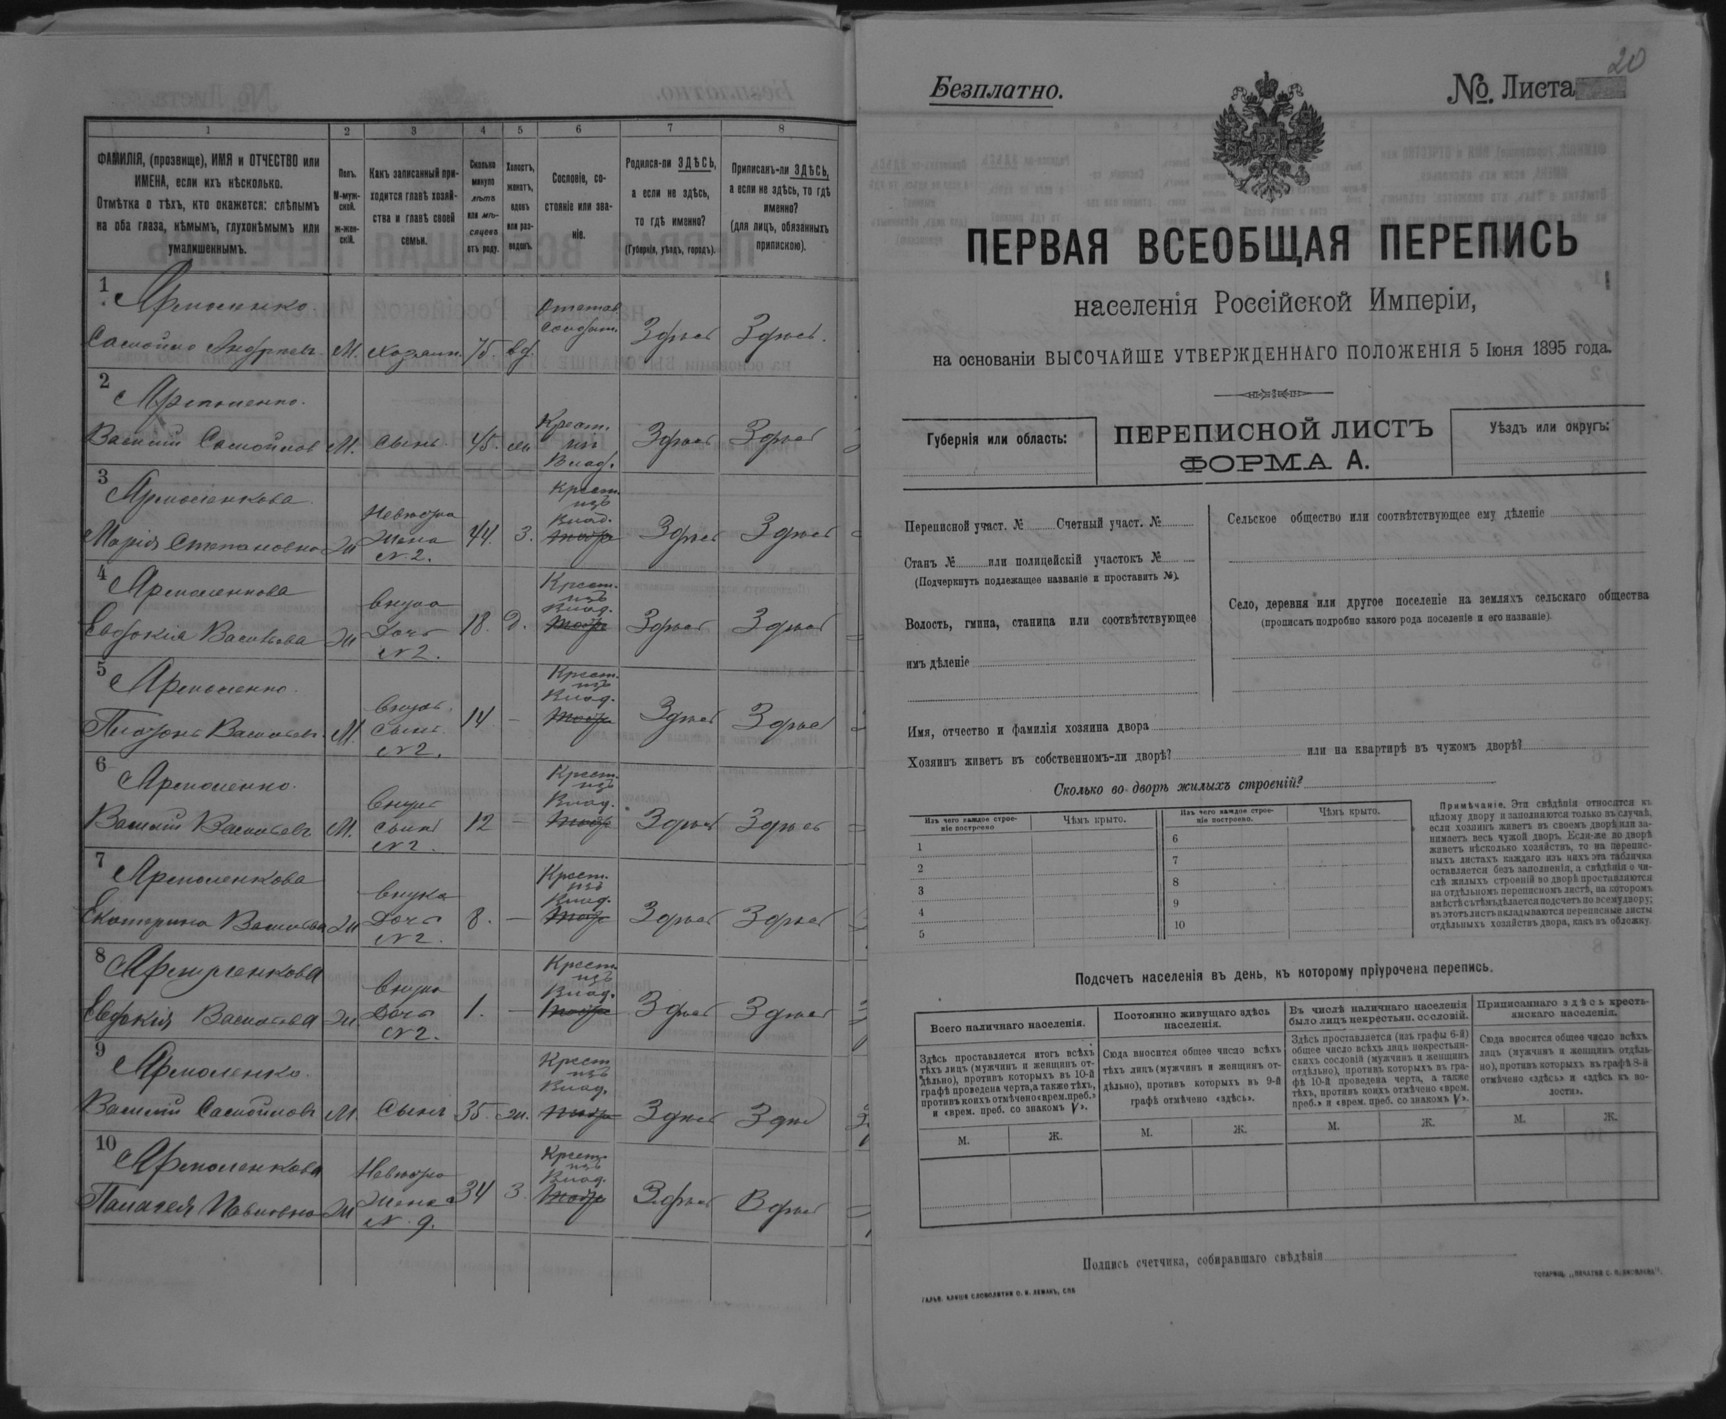 1 2 3 4 5 6 7 8
ФАМИЛІЯ, (прозвище), ИМЯ и ОТЧЕСТВО или
ИМЕНА, если ихъ нѣсколько.
Отмѣтка о тѣхъ, кто окажется: слѣпымъ
на оба глаза, нѣмымъ, глухонѣмымъ или
умалишеннымъ.
Полъ.
М-муж-
ской.
ж-жен-
скій.
Какъ записанный при-
ходится главѣ хозяй-
ства и главѣ своей
семьи.
Сколько
минуло
лѣтъ
или мѣ-
сяцевъ
отъ роду.
Холостъ,
женатъ,
вдовъ
или раз-
веденъ.
Сословіе, со-
стояніе или зва-
ніе.
Родился-ли ЗДѢСЬ,
а если не здѣсь,
то гдѣ именно?
(Губернія, уѣздъ, городъ).
Приписанъ-ли ЗДѢСЬ,
а если не здѣсь, то гдѣ
именно?
(для лицъ, обязанныхъ
припискою).
1
Ярмоленко
М. хозяин. 75. вд. Здѣсь Здѣсь.
2 Ярмоленко.
Василій Самойлов М. сынъ 45. Крест. Влад. Здѣсь Здѣсь
3 Ярмоленкова
Марія Степановна Невѣстка жена №2. 44. З. Крест. изъ Влад. Здѣсь Здѣсь
4 Ярмоленкова
Евдокія Васильева дочь №2. 18. Д. Крест. изъ Влад. Здѣсь Здѣсь
5 Ярмоленко.
Васильев. М. внукъ сынъ №2. 14 — Крест. изъ Влад. Здѣсь Здѣсь
6 Ярмоленко.
Василій Васильевъ М. внукъ сынъ №2. 12 — Крест. изъ Влад. Здѣсь Здѣсь
7 Ярмоленкова
Екатерина Васильева внучка дочь №2. 8. — Крест. изъ Влад. Здѣсь Здѣсь
8 Ярмоленкова
Евдокія Васильева дочь №2. 1. — Крест. изъ Влад. Здѣсь Здѣсь
9 Ярмоленко.
Василій Самойловъ М. сынъ 35. ж. Крест. изъ Влад. Здѣсь
10 Ярмоленкова
Пелагея Невѣстка жена № 9. 34 З. Крест. изъ Влад. Здѣсь
20
Безплатно.
№. Листа
ПЕРВАЯ ВСЕОБЩАЯ ПЕРЕПИСЬ
населенія Россійской Имперіи,
на основаніи ВЫСОЧАЙШЕ УТВЕРЖДЕННАГО ПОЛОЖЕНІЯ 5 Іюня 1895 года.
Губернія или область:
ПЕРЕПИСНОЙ ЛИСТЪ
ФОРМА А.
Уѣздъ или округъ:
Переписной участ. № Счетный участ. №
Станъ № или полицейскій участокъ №
(Подчеркнуть подлежащее названіе и проставить №).
Волость, гмина, станица или соотвѣтствующее
имъ дѣленіе
Сельское общество или соотвѣтствующее ему дѣленіе
Село, деревня или другое поселеніе на земляхъ сельскаго общества
(прописать подробно какого рода поселеніе и его названіе).
Имя, отчество и фамилія хозяина двора
Хозяинъ живетъ въ собственномъ-ли дворѣ? или на квартирѣ въ чужомъ дворѣ?
Сколько во дворѣ жилыхъ строеній?
Изъ чего каждое строе-
ніе построено
Чѣмъ крыто.
Изъ чего каждое строе-
ніе построено.
Чѣмъ крыто.
1 6
2 7
3 8
4 9
5 10
Примѣчаніе. Эти свѣдѣнія относятся къ
цѣлому двору и заполняются только въ случаѣ,
если хозяинъ живетъ въ своемъ дворѣ или за-
нимаетъ весь чужой дворъ. Если-же во дворѣ
живетъ нѣсколько хозяйствъ, то на перепис-
ныхъ листахъ каждаго изъ нихъ эта табличка
оставляется безъ заполненія, а свѣдѣнія о чи-
слѣ жилыхъ строеній во дворѣ проставляются
на отдѣльномъ переписномъ листѣ, на которомъ
вмѣстѣ съ тѣмъ дѣлается подсчетъ по всему двору;
въ этотъ листъ вкладываются переписные листы
отдѣльныхъ хозяйствъ двора, какъ въ обложку.
Подсчетъ населенія въ день, къ которому пріурочена перепись.
Всего наличнаго населенія.
Постоянно живущаго здѣсь
населенія.
Въ числѣ наличнаго населенія
было лицъ некрестьян. сословій.
Приписаннаго здѣсь кресть-
янскаго населенія.
Здѣсь проставляется итогъ всѣхъ
тѣхъ лицъ (мужчинъ и женщинъ от-
дѣльно), противъ которыхъ въ 10-й
графѣ проведена черта, а также тѣхъ,
противъ коихъ отмѣчено «врем. преб.»
и «врем. преб. со знакомъ V».
Сюда вносится общее число всѣхъ
тѣхъ лицъ (мужчинъ и женщинъ от-
дѣльно), противъ которыхъ въ 9-й
графѣ отмѣчено «здѣсь».
Здѣсь проставляется (изъ графы 6-й)
общее число всѣхъ лицъ некрестьян-
скихъ сословій (мужчинъ и женщинъ
отдѣльно), противъ которыхъ въ гра-
фѣ 10-й проведена черта, а также
тѣхъ, противъ коихъ отмѣчено «врем.
преб.» и «врем. преб. со знакомъ V».
Сюда вносится общее число всѣхъ
лицъ (мужчинъ и женщинъ отдѣль-
но), противъ которыхъ въ графѣ 8-й
отмѣчено «здѣсь» и «здѣсь въ во-
лости».
М. Ж. М. Ж. М. Ж. М. Ж.
Подпись счетчика, собиравшаго свѣдѣнія